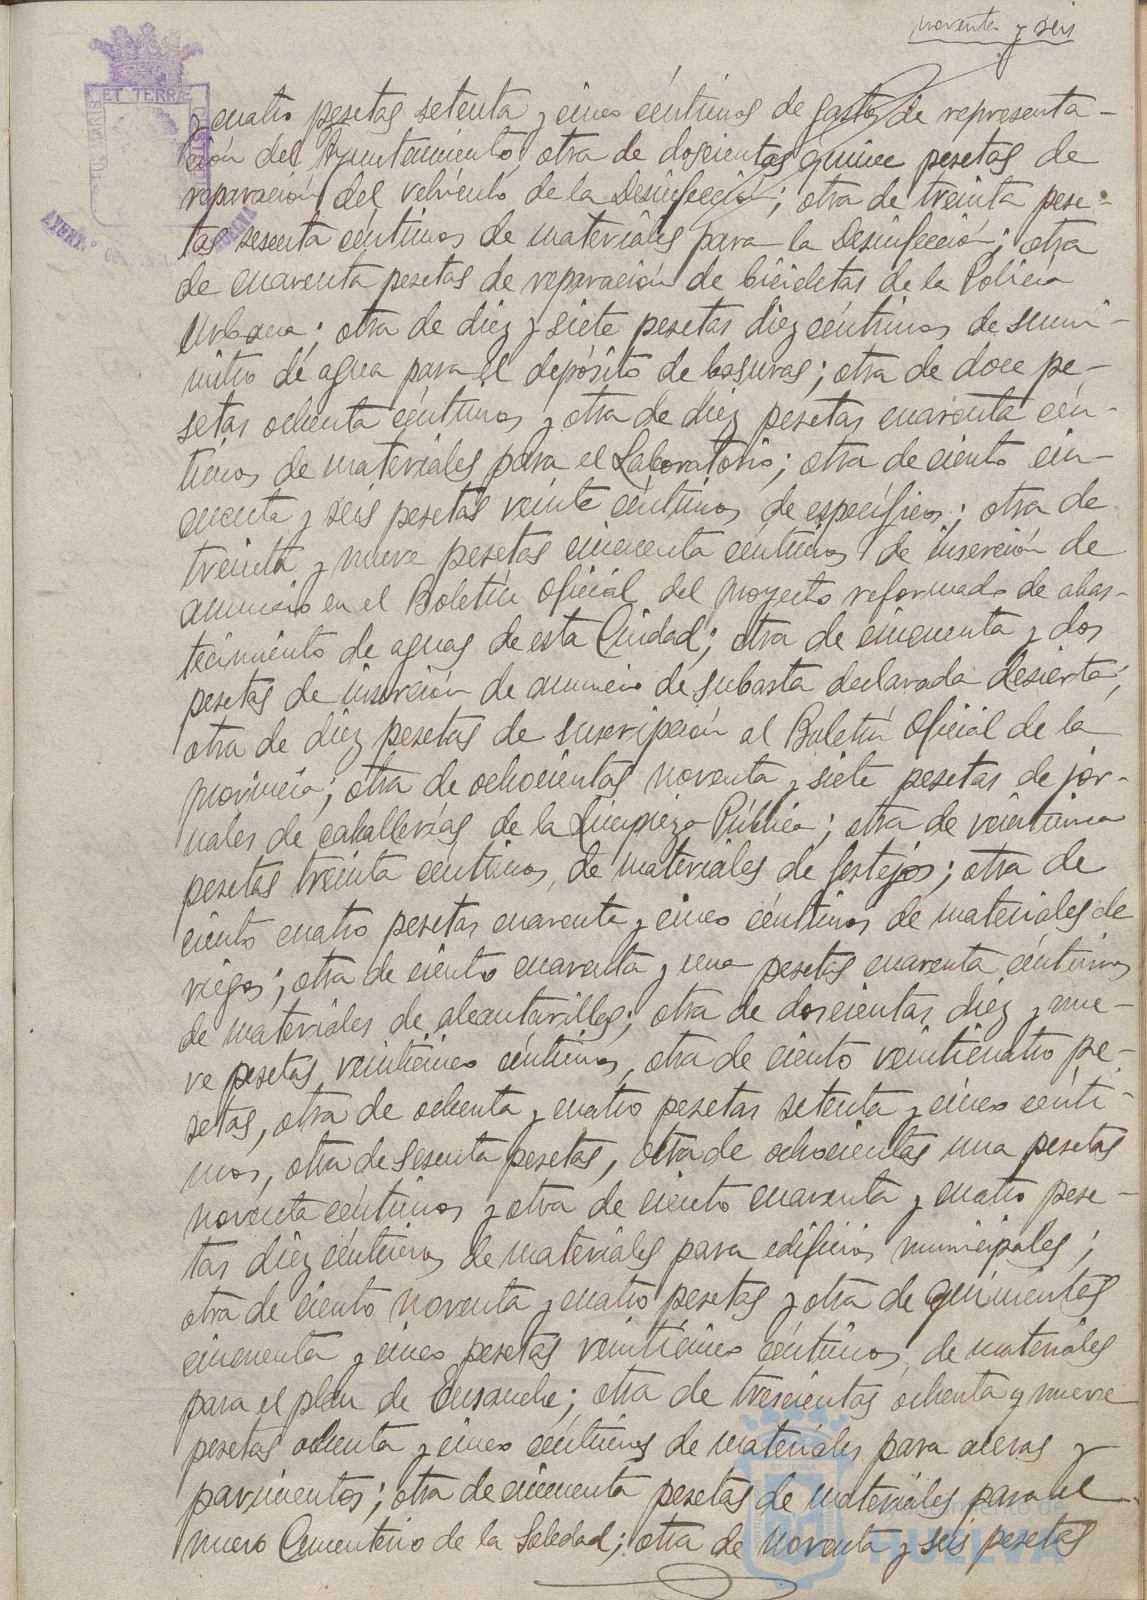 noventa y seis
y cuatro pesetas setenta y cinco céntimos de gastos de representa-
ción del Ayuntamiento; otra de doscientas quince pesetas de
reparación del vehículo de la Desinfección; otra de treinta pese-
tas sesenta céntimos de materiales para la Desinfección; otra
de cuarenta pesetas de reparación de bicicletas de la Policía
Urbana; otra de diez y siete pesetas diez céntimos de sumi-
nistro de agua para el depósito de basuras; otra de doce pe-
setas ochenta céntimos y otra de diez pesetas cuarenta cén-
timos de materiales para el Laboratorio; otra de ciento cin-
cuenta y seis pesetas veinte céntimos de específicos; otra de
treinta y nueve pesetas cincuenta céntimos de inserción de
anuncio en el Boletín Oficial del proyecto reformado de abas-
tecimiento de aguas de esta Ciudad; otra de cincuenta y dos
pesetas de inserción de anuncio de subasta declarada desierta;
otra de diez pesetas de suscripción al Boletín Oficial de la
provincia; otra de ochocientas noventa y siete pesetas de jor-
nales de caballerías de la Limpieza Pública; otra de veintiuna
pesetas treinta céntimos de materiales de festejos; otra de
ciento cuatro pesetas cuarenta y cinco céntimos de materiales de
riegos; otra de ciento cuarenta y una pesetas cuarenta céntimos
de materiales de alcantarillas; otra de doscientas diez y nue-
ve pesetas veinticinco céntimos, otra de ciento veinticuatro pe-
setas, otra de ochenta y cuatro pesetas setenta y cinco cénti-
mos, otra de sesenta pesetas, otra de ochocientas una pesetas
noventa céntimos y otra de ciento cuarenta y cuatro pese-
tas diez céntimos de materiales para edificios municipales;
otra de ciento noventa y cuatro pesetas y otra de quinientas
cincuenta y cinco pesetas veinticinco céntimos de materiales
para el plan de Ensanche; otra de trescientas ochenta y nueve
pesetas ochenta y cinco céntimos de materiales para aceras y
pavimentos; otra de cincuenta pesetas de materiales para el
nuevo Cementerio de la Soledad; otra de noventa y seis pesetas
ET TERRÆ
Ayuntamiento de
HUELVA